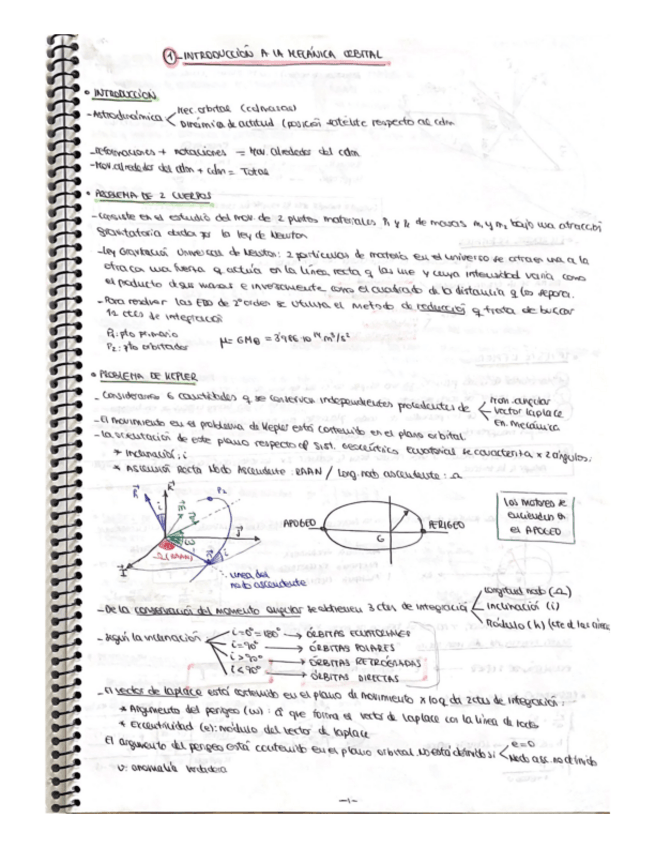 1 - INTRODUCCIÓN A LA MECÁNICA ORBITAL
• INTRODUCCIÓN
- Astrodinámica < Mec. orbital (cdmasas)
Dinámica de actitud (posición satélite respecto al cdm
- Deformaciones + rotaciones = Mov. alrededor del cdm
- Mov. alrededor del cdm + cdm = Total
• PROBLEMA DE 2 CUERPOS
- Consiste en el estudio del mov. de 2 puntos materiales P₁ y P₂ de masas m₁ y m₂ bajo una atracción
gravitatoria dada por la ley de Newton
- Ley Gravitación Universal de Newton: 2 partículas de materia en el universo se atraen una a la
otra con una fuerza q actúa en la línea recta q las une y cuya intensidad varía como
el producto de sus masas e inversamente como el cuadrado de la distancia q las separa.
- Para resolver las EDO de 2º orden se utiliza el método de reducción q trata de buscar
12 ctes de integración
P₁: pto primario
P₂: pto orbitador
μ = GM⊕ = 3'986·10¹⁴ m³/s²
• PROBLEMA DE KEPLER
- Consideramos 6 cantidades q se conservan independientes procedentes de < mom. angular
vector laplace
en. mecánica
- El movimiento en el problema de Kepler está contenido en el plano orbital
- La orientación de este plano respecto al sist. geocéntrico ecuatorial se caracteriza x 2 ángulos:
* Inclinación: i
* Ascensión Recta Nodo Ascendente: RAAN / Long. nodo ascendente: Ω
h K P₂
i
ω
J
Ω (RAAN)
n
i
I
Línea del
nodo ascendente
APOGEO PERIGEO
G
Los motores se
encienden en
el APOGEO
- De la conservación del momento angular se obtienen 3 ctes de integración < Longitud nodo (Ω)
Inclinación (i)
Módulo (h)
- Según la inclinación
i = 0º = 180º → ÓRBITAS ECUATORIALES
i = 90º → ÓRBITAS POLARES
i > 90º → ÓRBITAS RETRÓGRADAS
i < 90º → ÓRBITAS DIRECTAS
- El vector de laplace está contenido en el plano de movimiento x lo q da 2 ctes de integración:
* Argumento del perigeo (ω): que forma el vector de laplace con la línea de
* Excentricidad (e): módulo del vector de laplace
El argumento del perigeo está contenido en el plano orbital. No está definido si < e = 0
Nodo asc. no definido
ν: anomalía verdadera
-1-